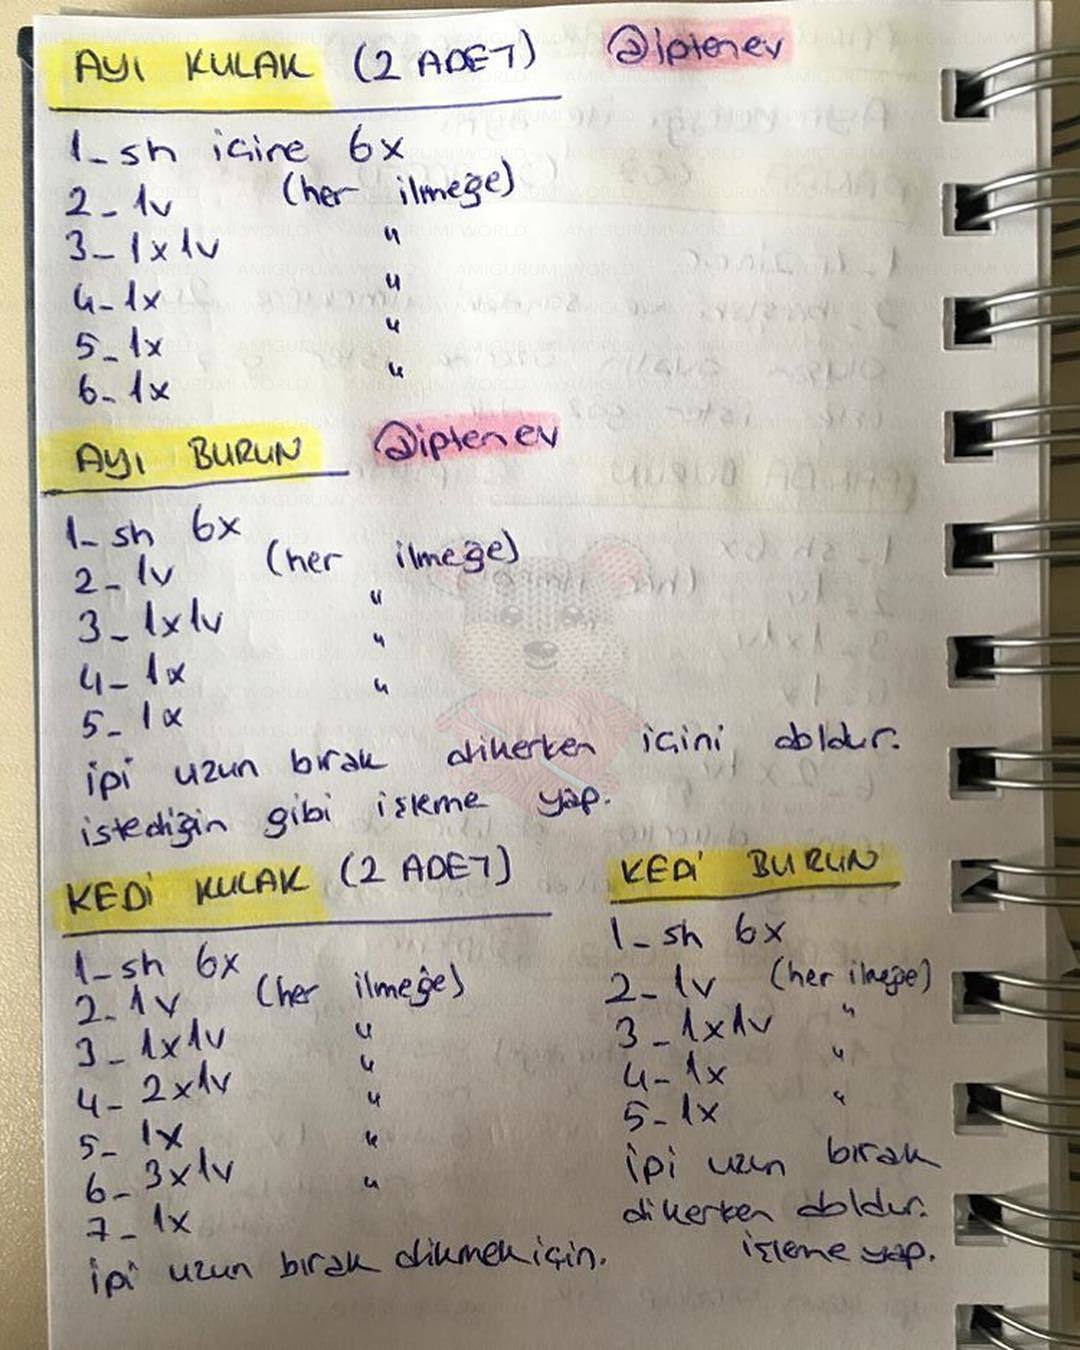 AYI KULAK (2 ADET) @iptenev
1_ sh içine 6x
2_ 1v (her ilmeğe)
3_ 1x1v "
4_ 1x "
5_ 1x "
6_ 1x "
AYI BURUN @iptenev
1_ sh 6x
2_ 1v (her ilmeğe)
3_ 1x1v "
4_ 1x "
5_ 1x "
ipi uzun bırak dikerken içini doldur.
istediğin gibi işleme yap.
KEDİ KULAK (2 ADET)
1_ sh 6x
2_ 1v (her ilmeğe)
3_ 1x1v "
4_ 2x1v "
5_ 1x "
6_ 3x1v "
7_ 1x "
ipi uzun bırak dikmek için.
KEDİ BURUN
1_ sh 6x
2_ 1v (her ilmeğe)
3_ 1x1v "
4_ 1x "
5_ 1x "
ipi uzun bırak
dikerken doldur.
işleme yap.
AMIGURUMI WORLD